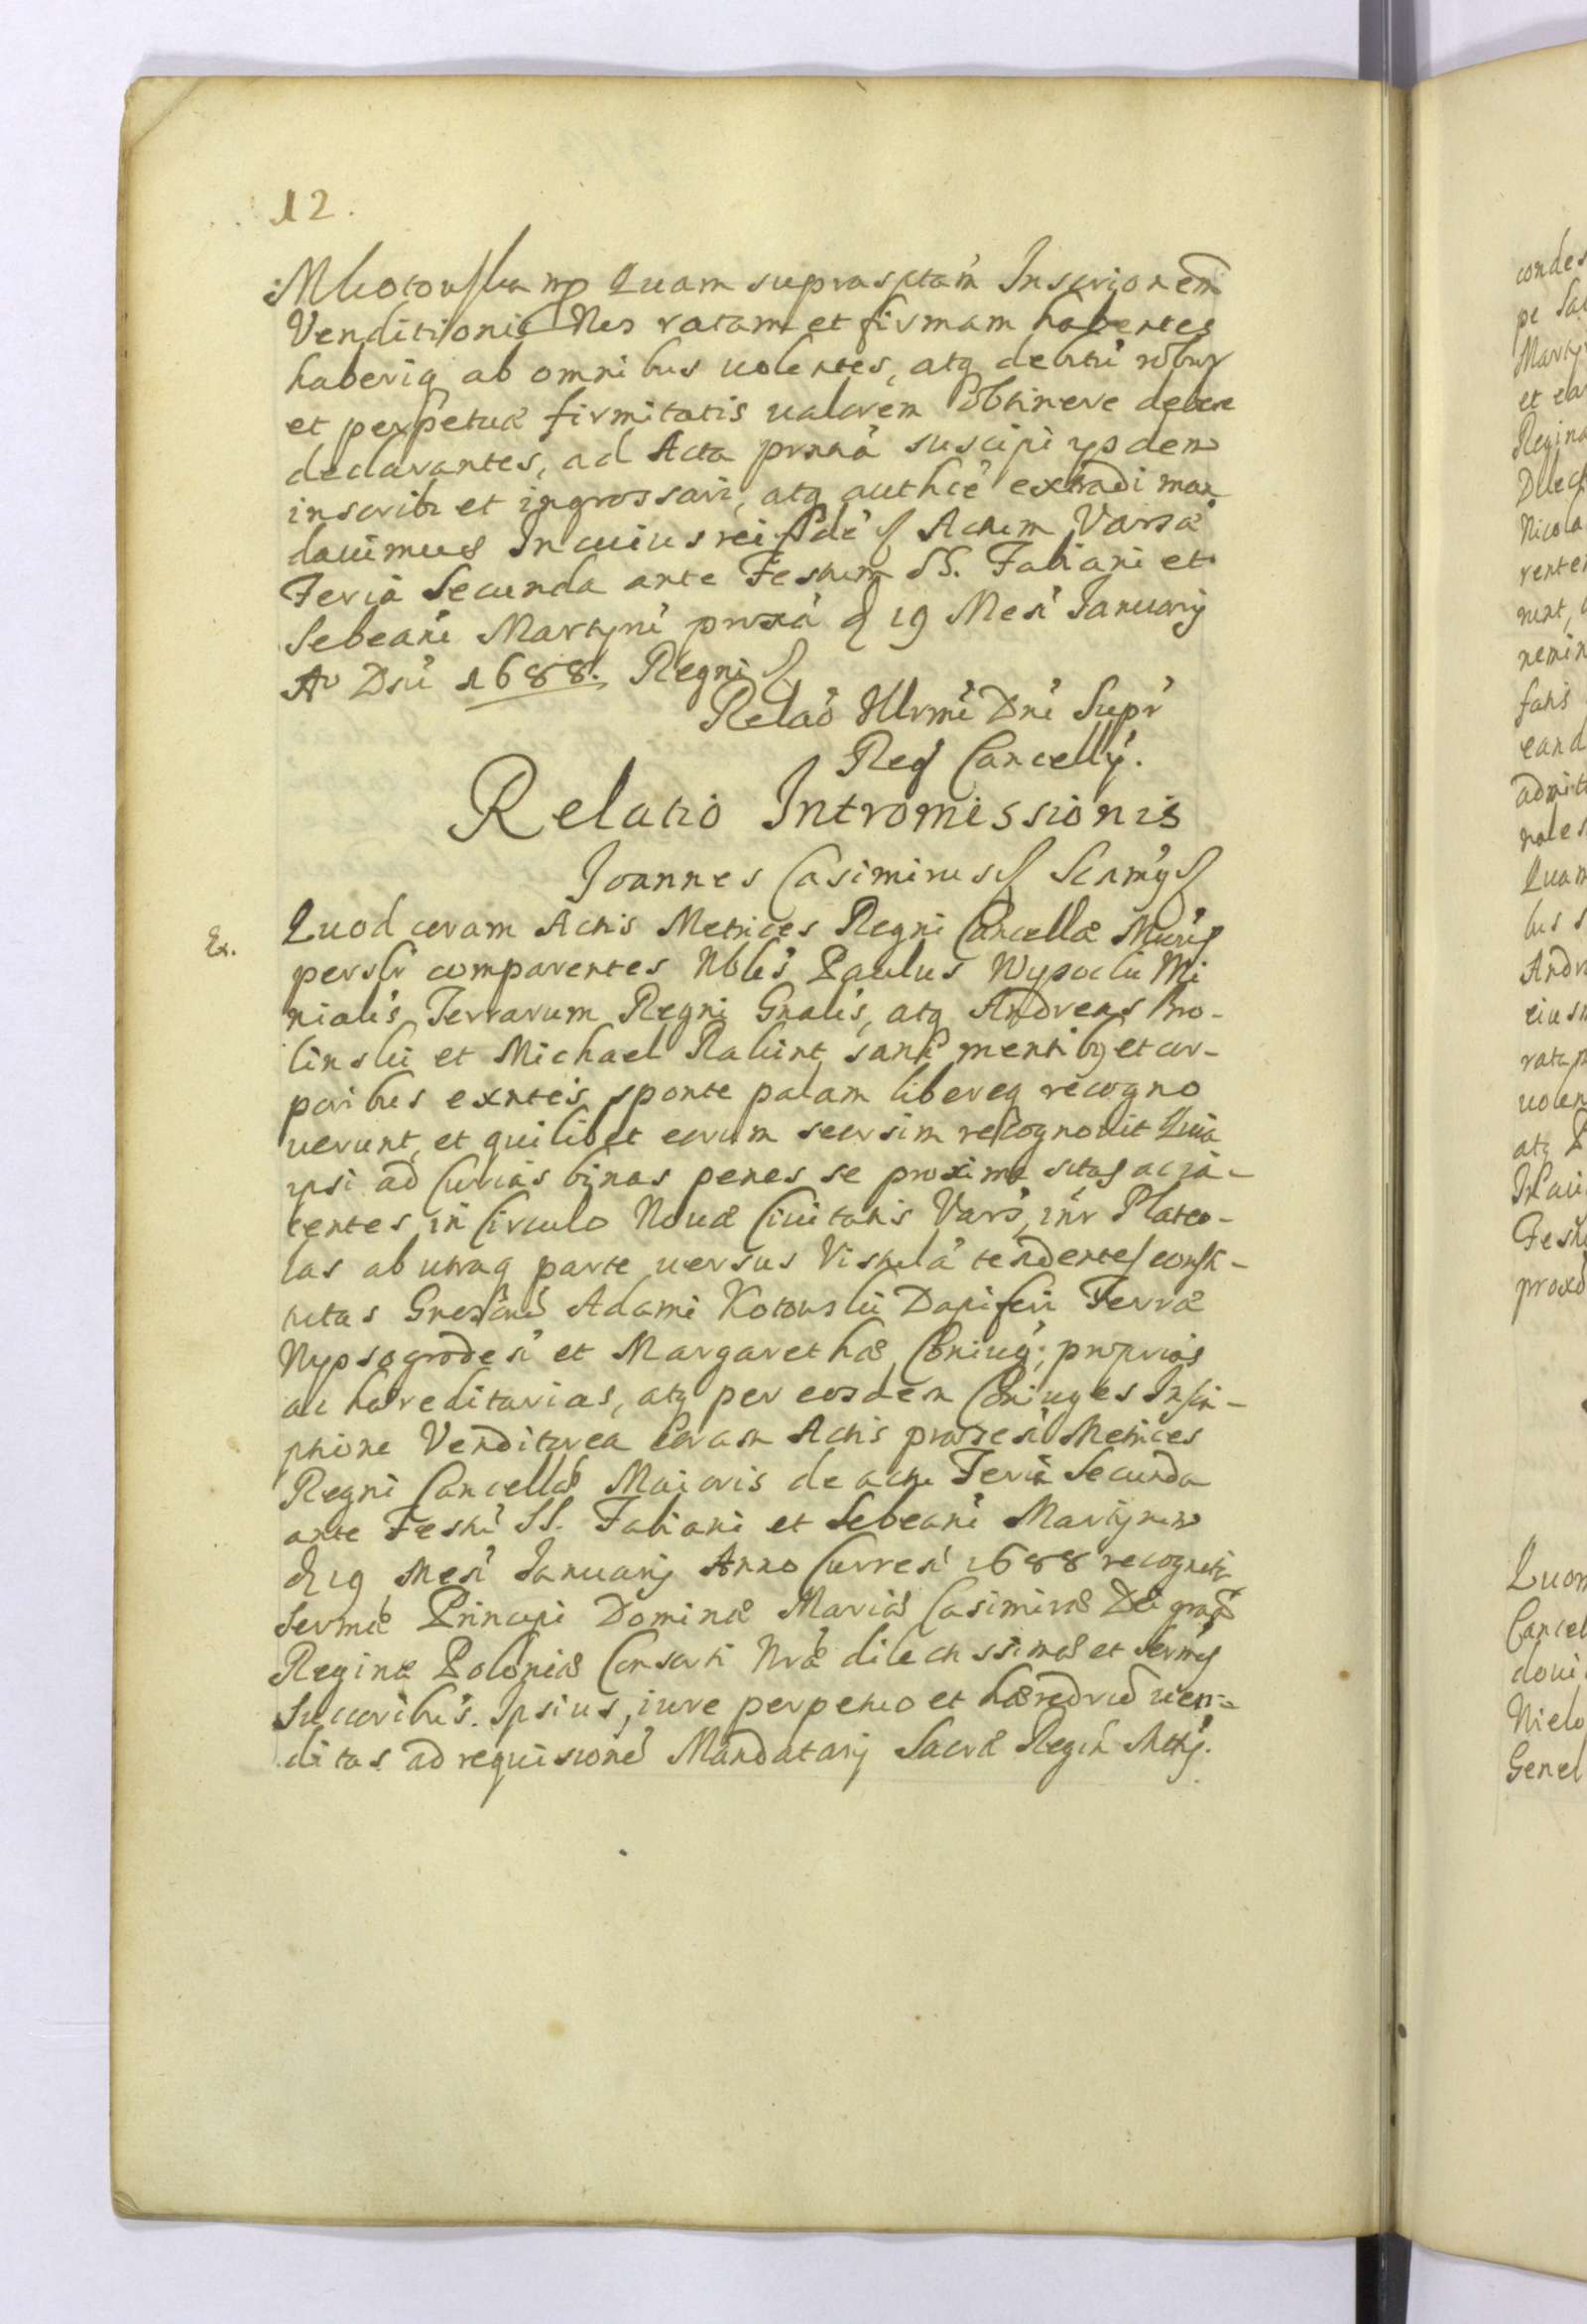 12.
MKotowska mp Quam suprasctam Inscrionem
Venditionis Nos ratam et firmam habentes
haberiq ab omnibus uolentes, atq debiti robur
et perpetuæ firmitatis ualorem obtinere debere
declarantes, ad Acta prnna suscipi ysdem
inscribi et ingrossari, atq authce extradi man
dauimus In cuius rei fide Actum Varsa
Feria Secunda ante Festum SS. Fabiani et
Sebeani Martyru proxa d 19 Mesi Januarij
Ao Dni 1688. Regni
Relao Illrmi Dni Supr
Reg Cancellÿ.
Relatio Intromissionis
Joannes Casimirus
Ex. Quod coram Actis Metrices Regni Cancellæ
persłr comparentes Nbles Paulus Wysocki Mi
nialis Terrarum Regni Gnalis, atq Andreas Bro-
linski et Michael Rakint sani mentibq et cor-
poribus exntes, sponte palam libereq recogno
uerunt, et quilibet eorum seorsim recognouit Quia
ipsi ad Curias binas penes se proxime sitas ac ja-
centes, in Circulo Nouæ Ciuitatis Vars, intr Plateo-
las ab utraq parte uersus Vistula tendentes consti-
tutas Gnesor Adami Kotowski Dapiferi Terræ
Wyssogrodesi et Margarethæ Coniug; proprias
ac hæreditarias, atq per eosdem Coniuges Inscri-
ptione Venditorea Coram Actis præsesi Metrices
Regni Cancellæ Maioris de actu Feria Secunda
ante Festu SS. Fabiani et Sebeani Martyrum
d 19 Mesi Januarij Anno Curresi 1688 recognita
Sermæ Principi Dominæ Mariæ Casimiræ Dei gratia
Reginæ Poloniæ Consorti Nræ dilectissimæ et
Succoribus Ipsius, iure perpetuo et hæredrio uen-
ditas ad requisione Mandatarij Sacræ Regin Mttis.